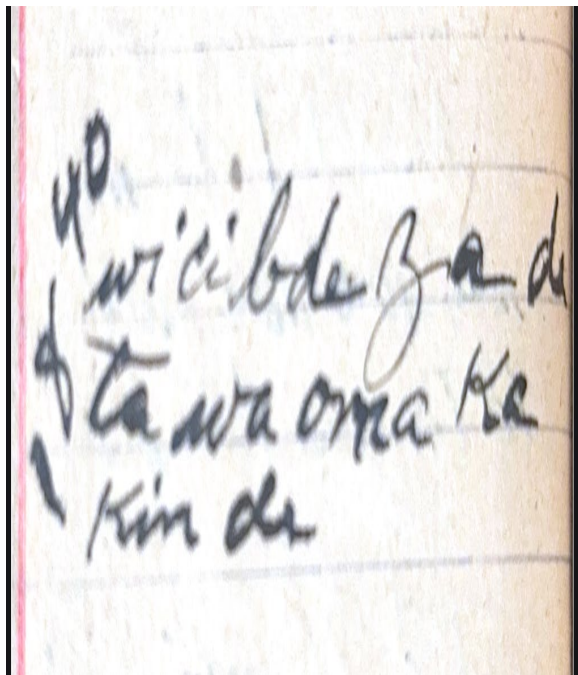 wicibdeza de
tawa omaka
kin de